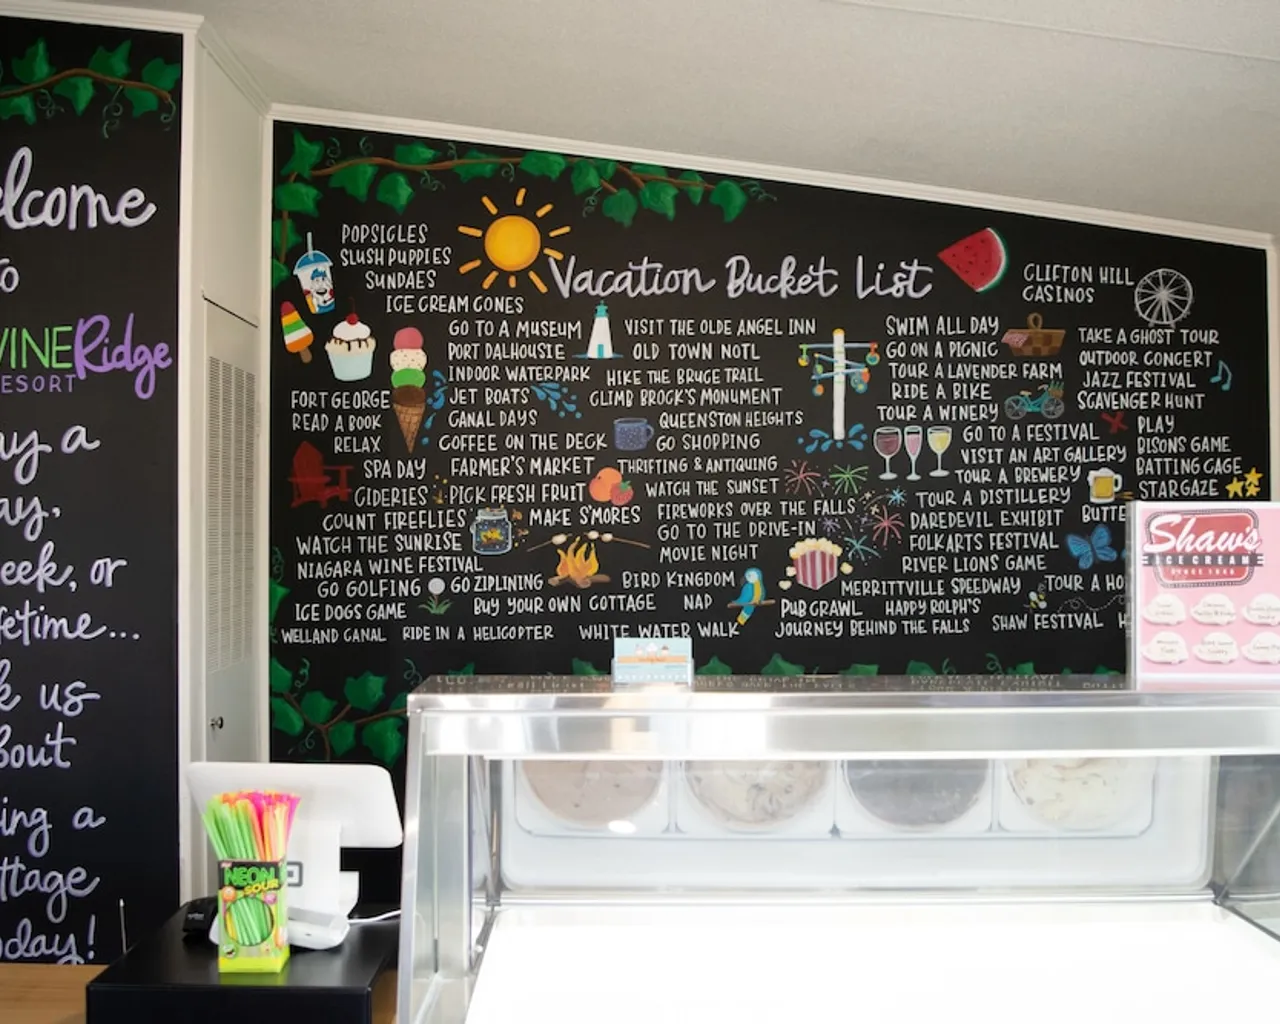 Welcome
to
VINERidge
RESORT
day,
week, or
lifetime...
us
about
a
cottage
today!
Vacation Bucket List
POPSICLES
SLUSH PUPPIES
SUNDAES
ICE CREAM CONES
GO TO A MUSEUM
PORT DALHOUSIE
INDOOR WATERPARK
JET BOATS
CANAL DAYS
COFFEE ON THE DECK
FARMER'S MARKET
PICK FRESH FRUIT
MAKE S'MORES
FORT GEORGE
READ A BOOK
RELAX
SPA DAY
CIDERIES
COUNT FIREFLIES
WATCH THE SUNRISE
NIAGARA WINE FESTIVAL
GO GOLFING
GO ZIPLINING
ICE DOGS GAME
BUY YOUR OWN COTTAGE
WELLAND CANAL
RIDE IN A HELICOPTER
WHITE WATER WALK
VISIT THE OLDE ANGEL INN
OLD TOWN NOTL
HIKE THE BRUCE TRAIL
CLIMB BROCK'S MONUMENT
QUEENSTON HEIGHTS
GO SHOPPING
THRIFTING & ANTIQUING
WATCH THE SUNSET
FIREWORKS OVER THE FALLS
GO TO THE DRIVE-IN
MOVIE NIGHT
BIRD KINGDOM
NAD
PUB CRAWL
HAPPY ROLPH'S
JOURNEY BEHIND THE FALLS
SWIM ALL DAY
GO ON A PICNIC
TOUR A LAVENDER FARM
RIDE A BIKE
TOUR A WINERY
GO TO A FESTIVAL
VISIT AN ART GALLERY
TOUR A BREWERY
TOUR A DISTILLERY
DAREDEVIL EXHIBIT
FOLKARTS FESTIVAL
RIVER LIONS GAME
MERRITTVILLE SPEEDWAY
TOUR A HO
SHAW FESTIVAL
H
CLIFTON HILL
CASINOS
TAKE A GHOST TOUR
OUTDOOR CONCERT
JAZZ FESTIVAL
SCAVENGER HUNT
PLAY
BISONS GAME
BATTING CAGE
STARGAZE
BUTTE
Shaw's
ICE CREAM
SINCE 1948
NEON
SOUR